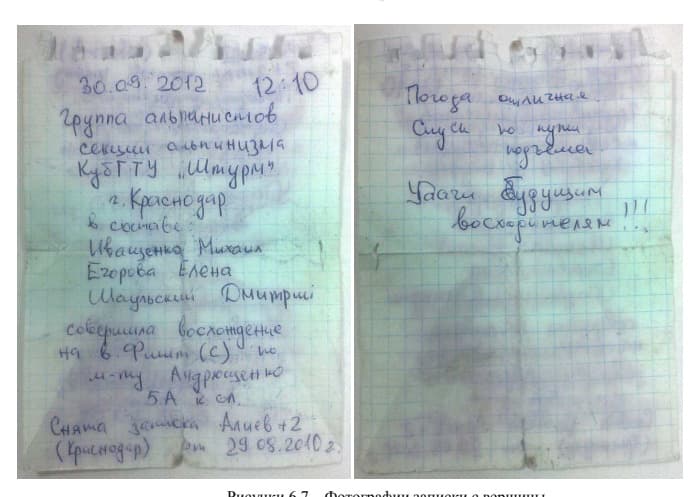 30.09.2012 12:10
Группа альпинистов
секции альпинизма
КубГТУ „Штурм"
г. Краснодар
в составе:
Иващенко Михаил
Егорова Елена
Шаульский Дмитрий
совершила восхождение
на в. Филит (С) по
м-ту Андрющенко
5А к.сл.
Снята записка Алиев +2
(Краснодар) от 29.08.2010 г.
Погода отличная.
Спуск по пути
подъема.
Удачи будущим
восходителям!!!
Рисунки 6,7 – Фотографии записки с вершины